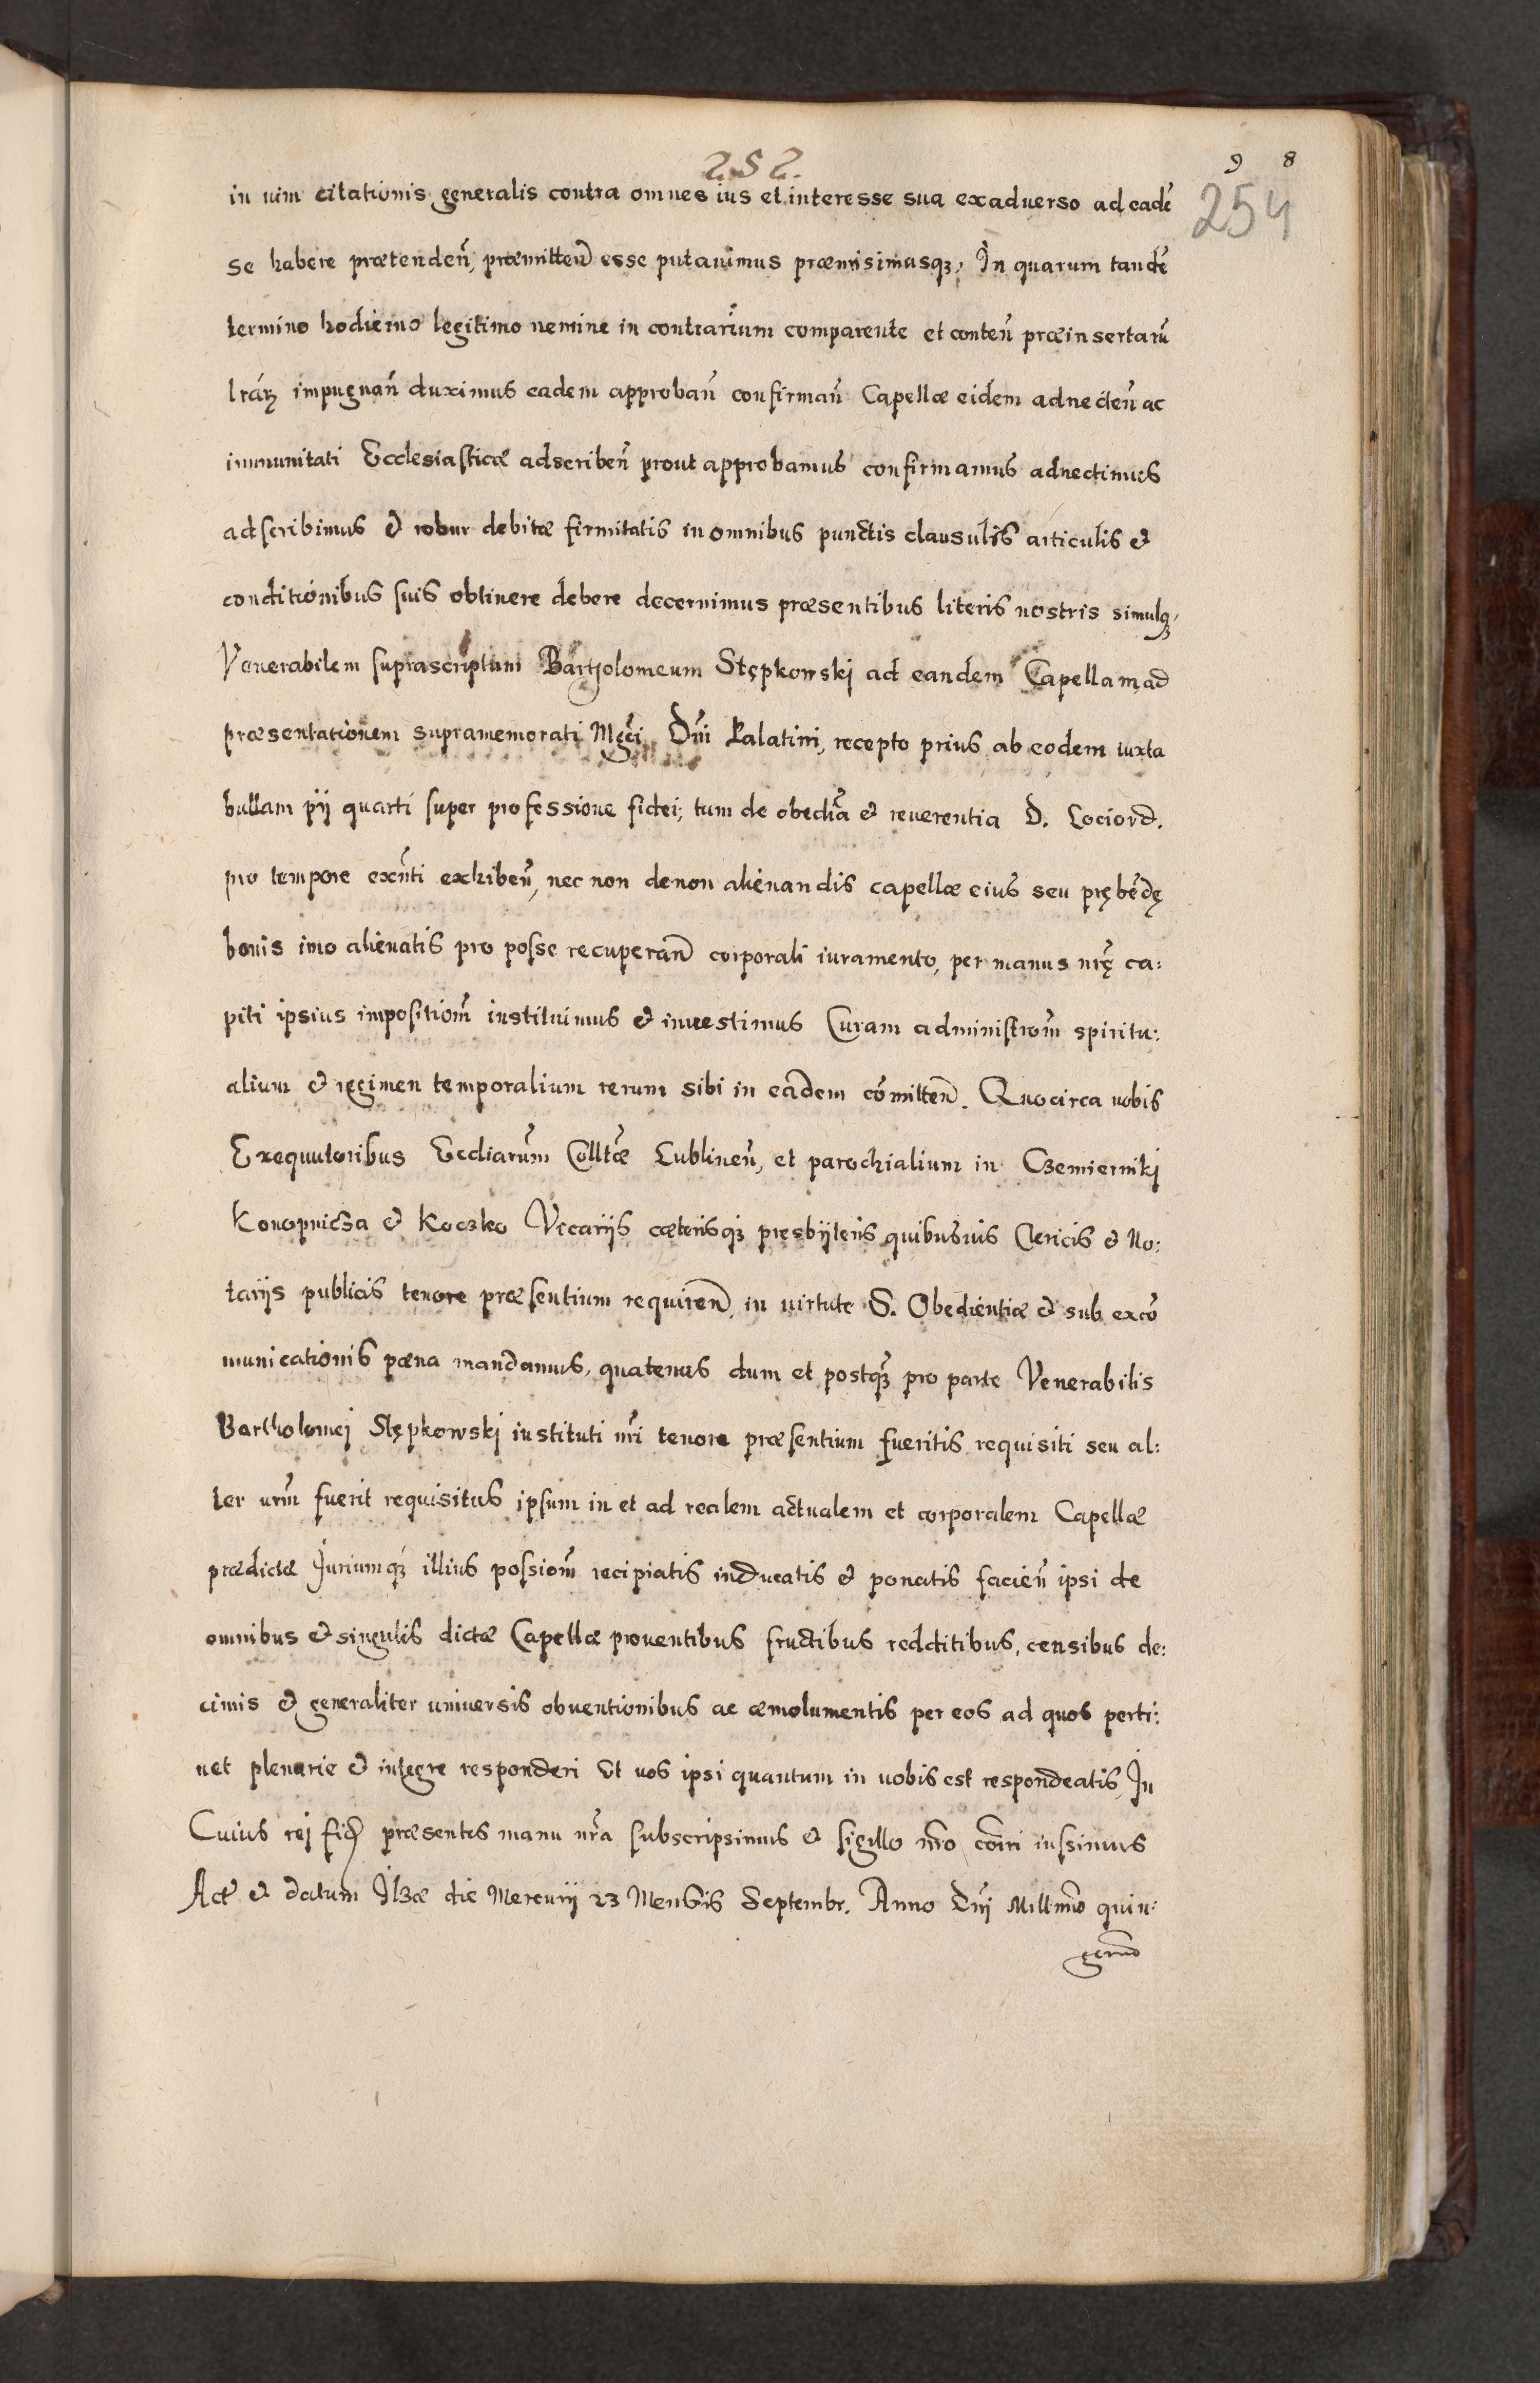 252.
9 8
254
in vim citationis generalis contra omnes ius et interesse sua exaduerso ad eadẽ
se habere prætendeñ, præmitteñ esse putauimus præmisimusqꝫ, In quarum tandẽ
termino hodierno legitimo nemine in contrarium comparente et conteñ præinsertarũ
lrãrꝫ impugnañ duximus eadem approbañ confirmañ Capellæ eidem adnecteñ ac
immunitati Ecclesiasticæ adscribeñ prout approbamus confirmamus adnectimus
adscribimus & robur debitæ firmitatis in omnibus punctis clausulis articulis &
conditionibus suis obtinere debere decernimus præsentibus literis nostris simulqꝫ,
Venerabilem suprascriptum Bartholomeum Stępkowski ad eandem Capellam ad
præsentationem supramemorati Mgci Dñi Palatini, recepto prius ab eodem iuxta
bullam pij quarti super professione fidei; tum de obediã & reuerentia D. Lociord.
pro tempore exñti exhibeñ, nec non de non alienandis capellæ eius seu prębẽdę
bonis imo alienatis pro posse recuperañ corporali iuramento, per manus nrę ca:
piti ipsius impositiom̃ instituimus & inuestimus Curam administrom̃ spiritu:
alium & regimen temporalium rerum sibi in eãdem cõmitteñ. Quocirca vobis
Exequutoribus Eccliarum Colltæ Lublineñ, et parochialium in Czemierniki
Konopnicza & Koczko Vicarijs cæterisqꝫ presbijteris quibusuis Clericis & No:
tarijs publicis tenore præsentium requireñ, in virtute S. Obedientiæ & sub excõ
municationis pæna mandamus, quatenus dum et postqꝫ pro parte Venerabilis
Bartholomej Stępkowskj instituti nri tenore præsentium fueritis requisiti seu al:
ter vrm̃ fuerit requisitus ipsum in et ad realem actualem et corporalem Capellæ
prædictæ Juriumqꝫ illius possiom̃ recipiatis inducatis & ponatis facieñ ipsi de
omnibus & singulis dictæ Capellæ prouentibus fructibus redditibus, censibus de:
cimis & generaliter vniuersis obuentionibus ac æmolumentis per eos ad quos perti:
net plenarie & integre responderi Et vos ipsi quantum in vobis est respondeatis, In
Cuius rej fid præsentes manu nrã subscripsimus & sigillo nro cõiri iussimus
Act & datum Ilzæ die Mercurij 23 Mensis Septembr. Anno Dñj Millmõ quin:
germo